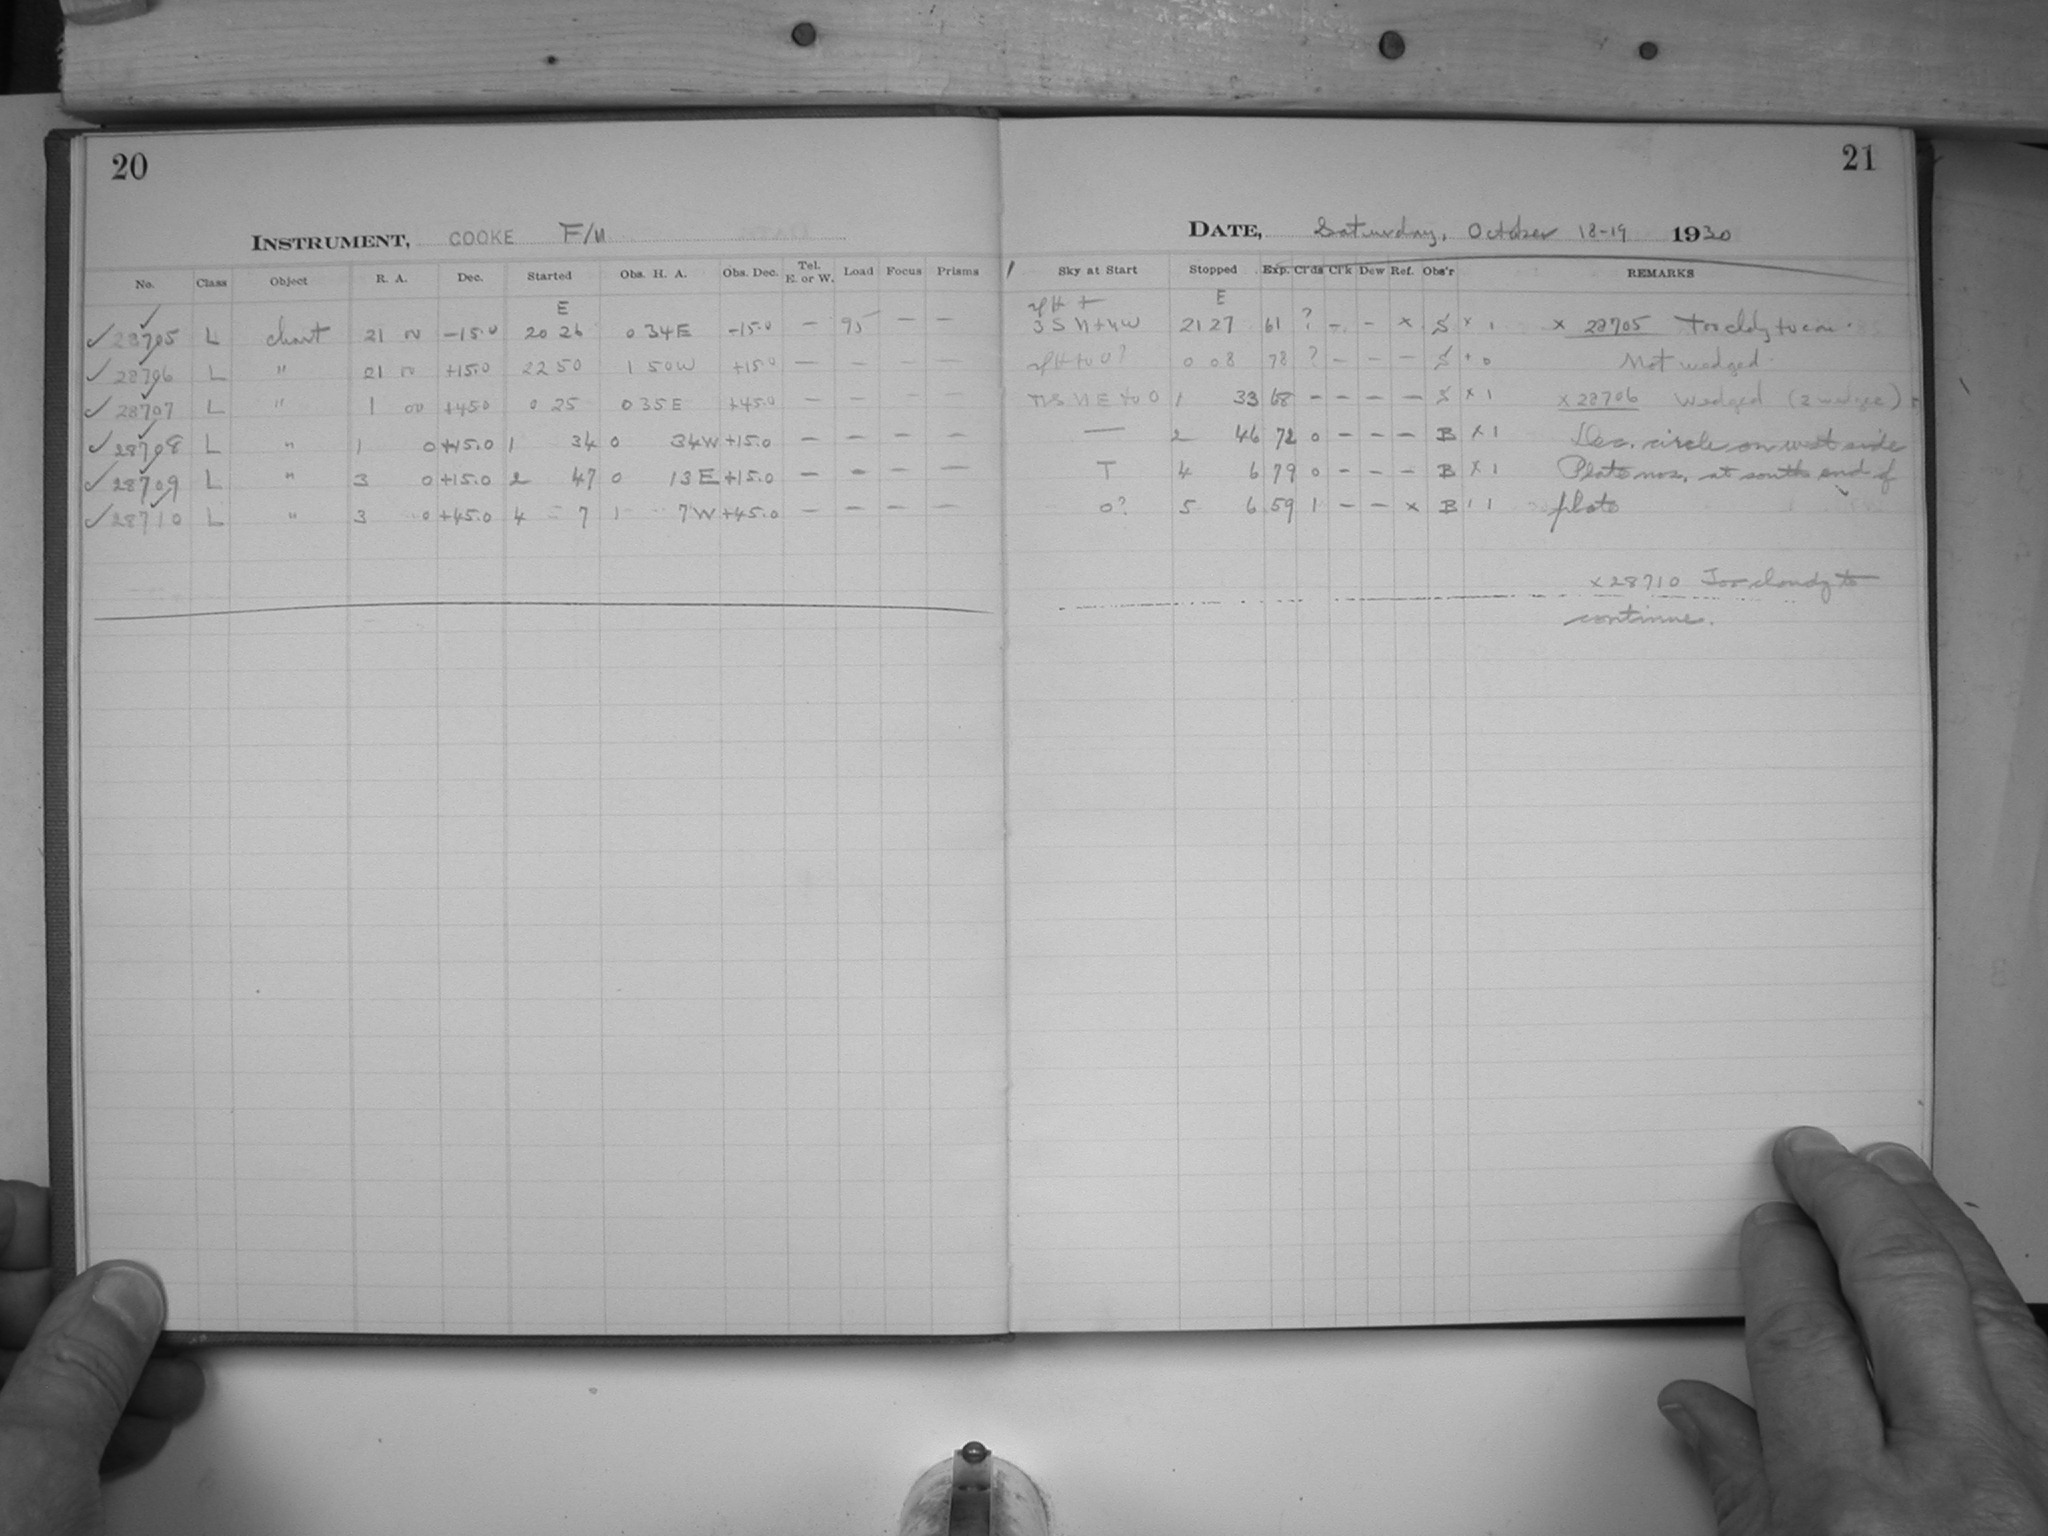 20
INSTRUMENT, COOKE F/11
No. Class Object R. A. Dec. Started Obs. H. A. Obs. Dec. Tel. E. or W. Load Focus Prisms
E
28705 L chart 21 00 -15.0 20 26 0 34E -15.0 — 95 — —
28706 L " 21 00 +15.0 22 50 1 50W +15.0 — — — —
28707 L " 1 00 +45.0 0 25 0 35E +45.0 — — — —
28708 L " 1 0 +15.0 1 34 0 34W +15.0 — — — —
28709 L " 3 0 +15.0 2 47 0 13E +15.0 — — — —
28710 L " 3 0 +45.0 4 7 1 7W +45.0 — — — —
21
DATE, Saturday, October 18-19 1930
Sky at Start Stopped Exp. Cl'ds Cl'k Dew Ref. Obs'r REMARKS
E
3 S 21 27 61 ? - - x S x 1 x 28705 Too cldy to con.
0? 0 08 78 ? - - - S + 0 Not wedged.
NE to 0 1 33 68 - - - - S x 1 x 28706 Wedged (2 wedges)
— 2 46 72 0 - - - B x 1 Dec. circle on west side
T 4 6 79 0 - - - B x 1 Plate nos. at south end of
0? 5 6 59 1 - - x B 1 1 plate
x 28710 Too cloudy to
continue.